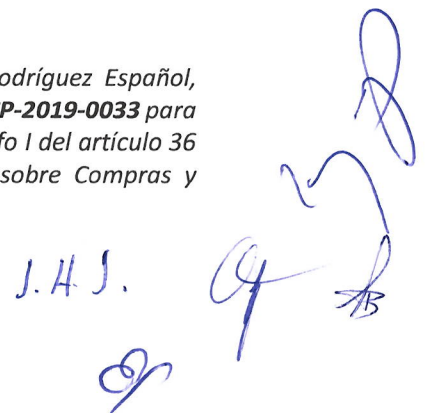 odríguez Español,
P-2019-0033 para
fo I del artículo 36
sobre Compras y
J. H. J.